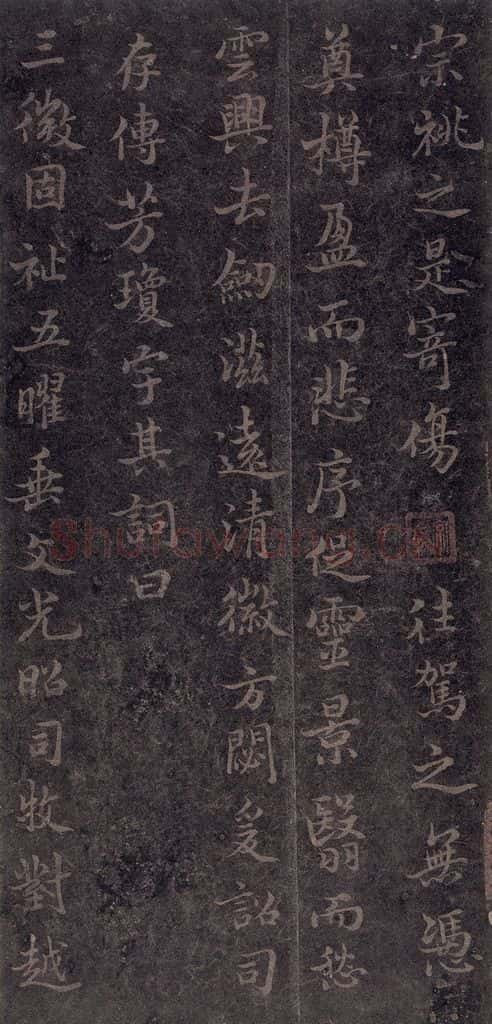 宗祧之是寄傷往駕之無憑
奠樽盈而悲序促靈景翳而愁
雲興去劒滋遠清徽方閟爰詔司
存傳芳瓊字其詞曰
三微固祉五曜垂文光昭司牧對越